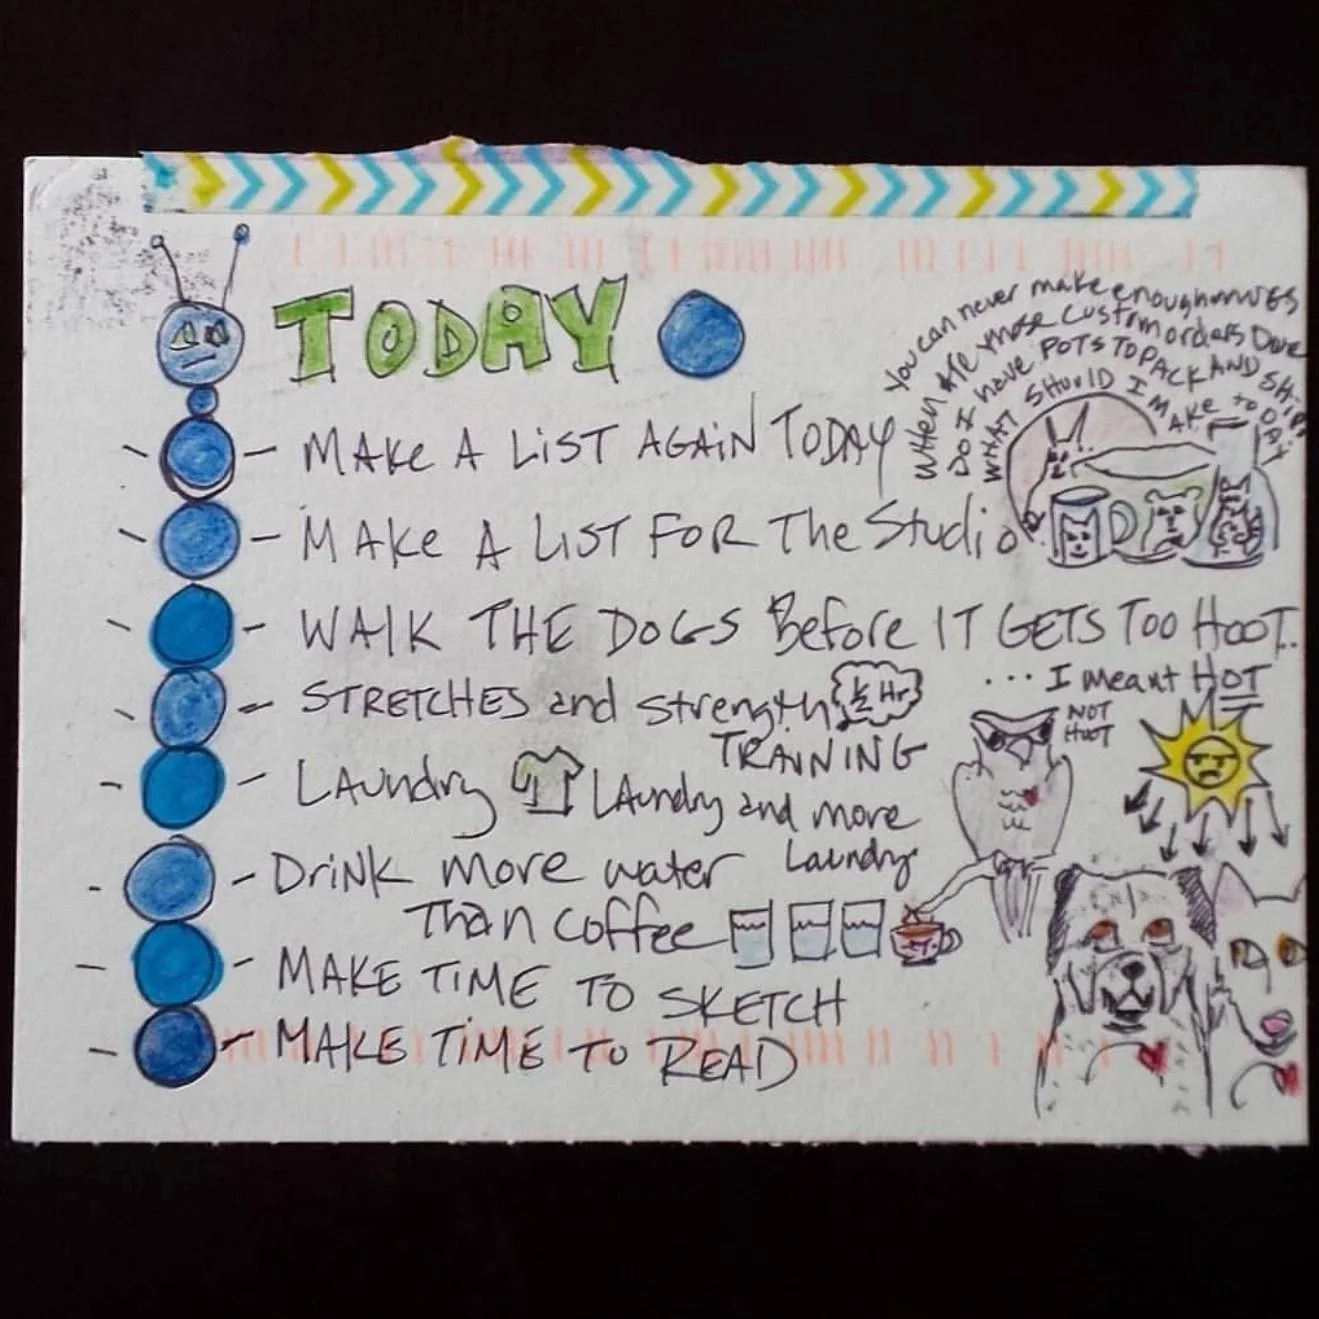 TODAY
You can never make enough mugs
When are those custom orders Done
Do I have POTS TO PACK AND SHIP
WHAT SHOULD I MAKE TODAY
- MAKE A LIST AGAIN TODAY
- MAKE A LIST FOR The Studio
- WALK THE DOGS Before IT GETS TOO HOOT..
... I meant HOT
NOT
HOOT
- STRETCHES and strength ½ Hr
TRAINING
- LAundry LAundry and more
Laundry
- DriNK more water
Than coffee
- MAKE TIME TO SKETCH
- MAKE TIME TO READ